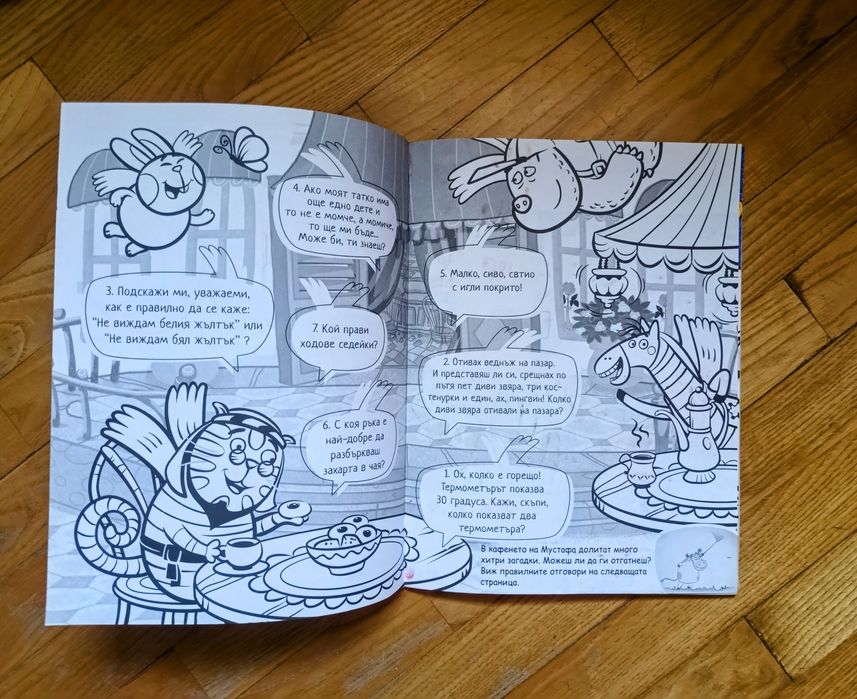 4. Ако моят татко има
още едно дете и
то не е момче, а момиче,
то ще ми бъде...
Може би, ти знаеш?
3. Подскажи ми, уважаеми,
как е правилно да се каже:
"Не виждам белия жълтък" или
"Не виждам бял жълтък" ?
7. Кой прави
ходове седейки?
6. С коя ръка е
най-добре да
разбъркваш
захарта в чая?
5. Малко, сиво, свтио
с игли покрито!
2. Отивах веднъж на пазар.
И представяш ли си, срещнах по
пътя пет диви звяра, три кос-
тенурки и един, ах, пингвин! Колко
диви звяра отивали на пазара?
1. Ох, колко е горещо!
Термометърът показва
30 градуса. Кажи, скъпи,
колко показват два
термометъра?
В кафенето на Мустафа долитат много
хитри загадки. Можеш ли да ги отгатнеш?
Виж правилните отговори на следващата
страница.